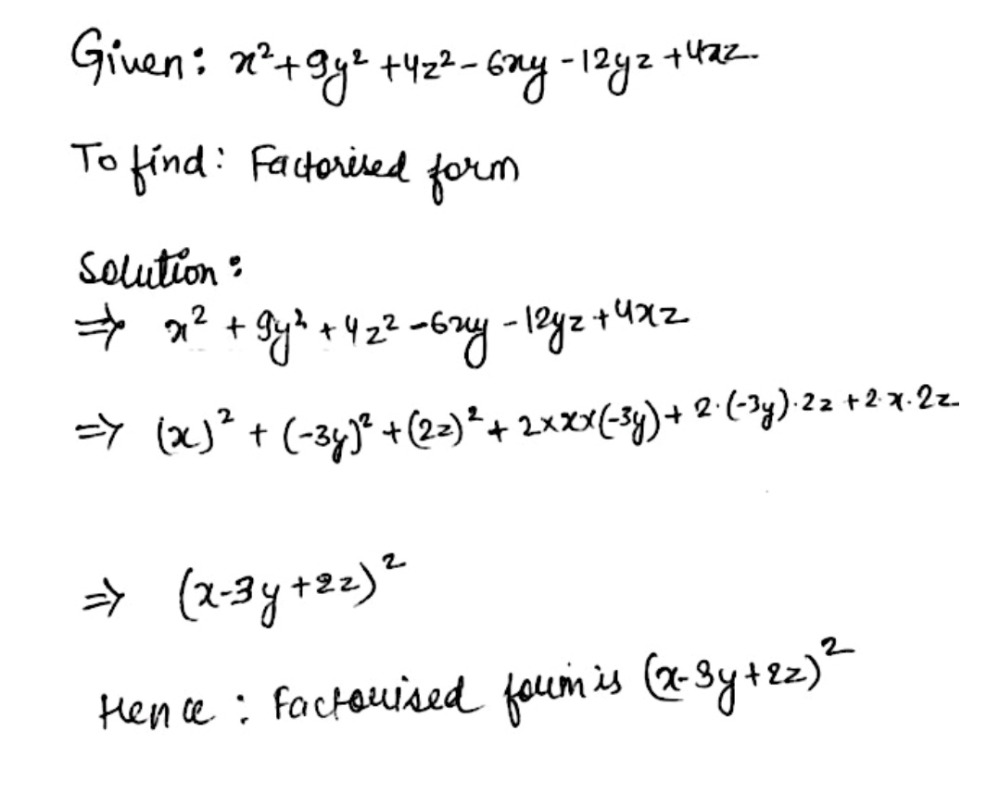 Given: x²+9y²+4z²-6xy-12yz+4xz.
To find: Factorised form
Solution:
⇒ x²+9y²+4z²-6xy-12yz+4xz
⇒ (x)²+(-3y)²+(2z)²+2×x×(-3y)+2·(-3y)·2z+2·x·2z
⇒ (x-3y+2z)²
Hence: Factorised form is (x-3y+2z)²